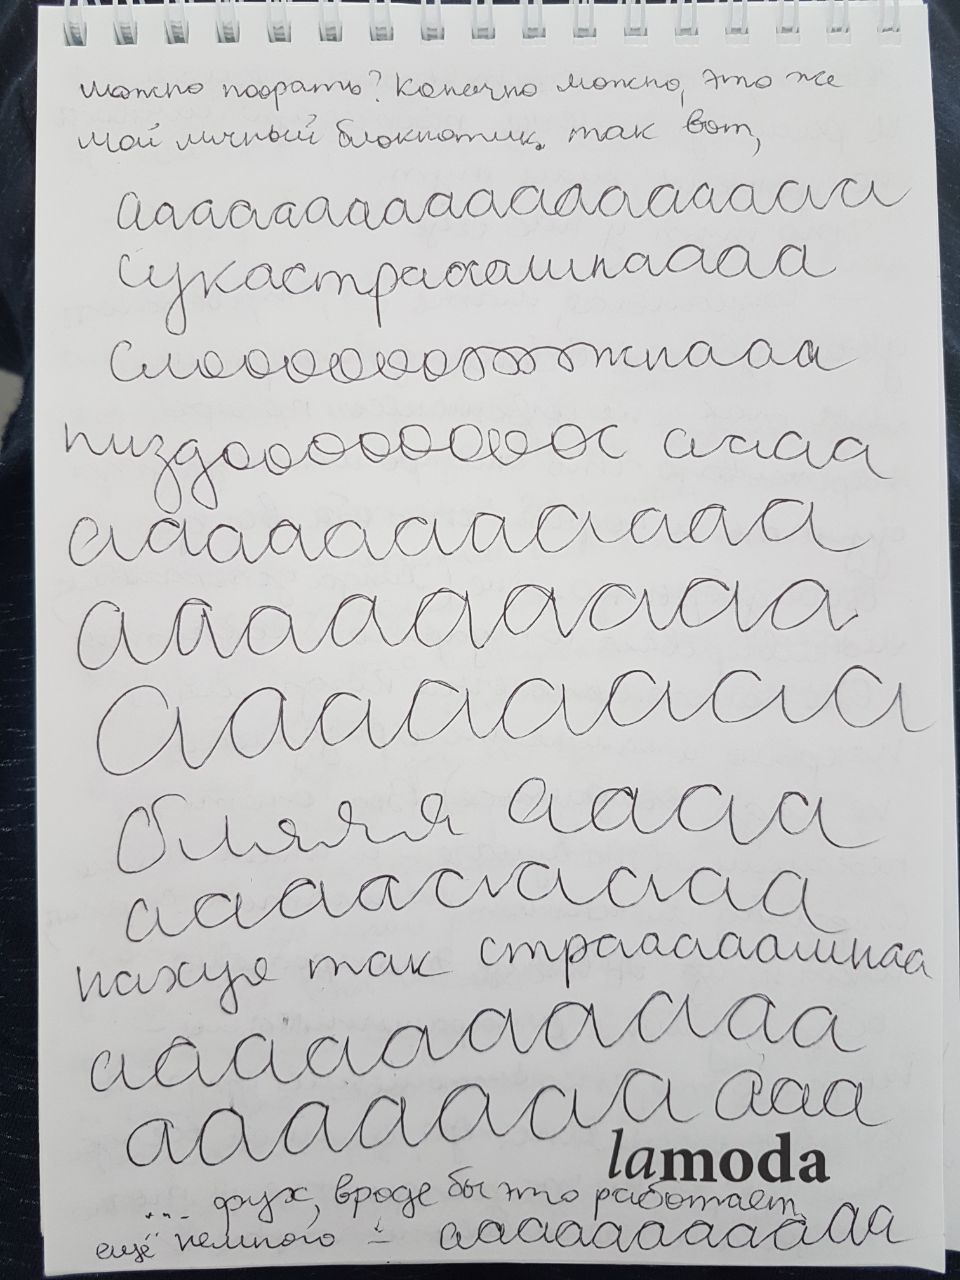 можно поорать? Конечно можно, это же
мой личный блокнотик. так вот,
аааааааааааааааааа
сукастраааашнаааа
слооооооожжжжнаааа
пиздооооооооос ааааа
ааааааааааа
ааааааааа
ааааааааа
бляяя ааааа
ааааааааа
нахуя так страааааашнаа
ааааааааа
ааааааа аааа
lamoda
... фух, вроде бы это работает
ещё немного - ааааааааааааа